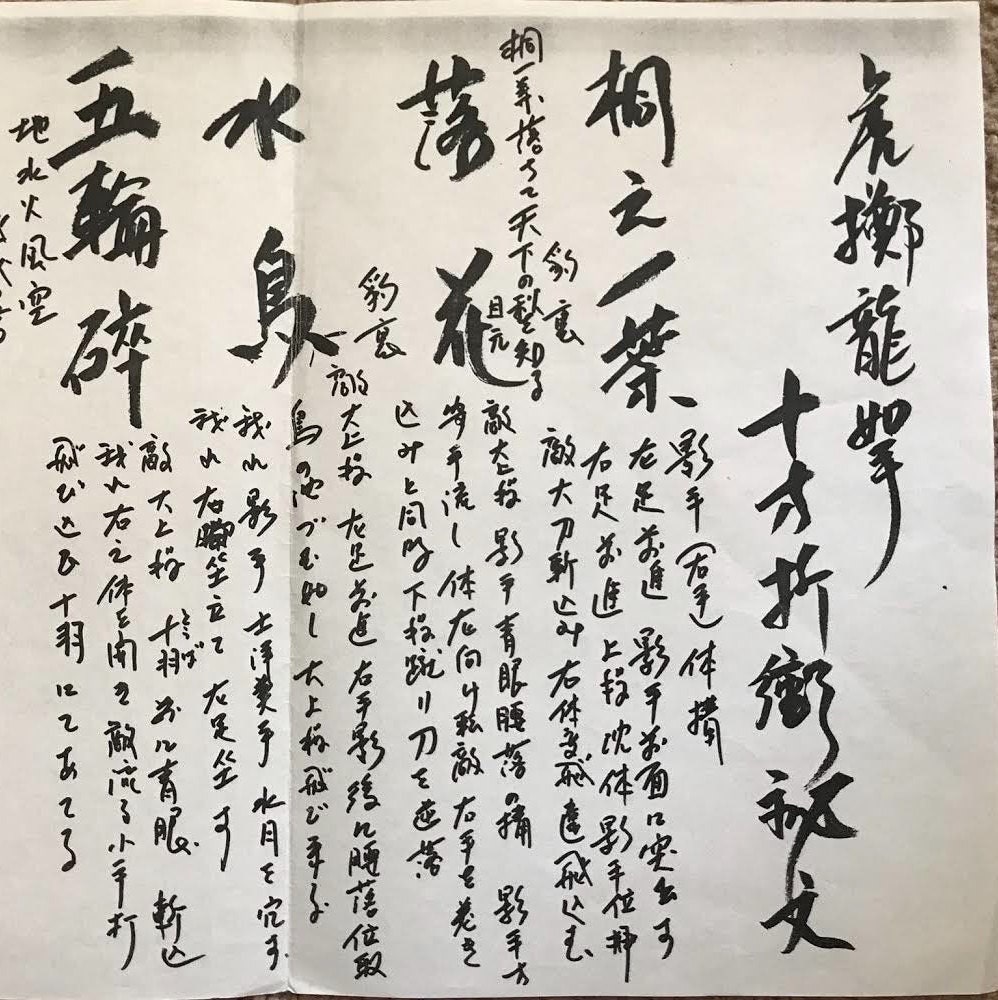 虎擲龍拏
十方折衝秘文
桐之一葉
影手(右手)体構
左足前進 影手前面に突出す
右足前進 上段 沈体影手位押
敵大刀斬込み 右体変飛違飛込む
桐一葉落ちて天下の秋を知る
豹裏
目元
落花
敵大上段 影手青眼腰落の構 影手方
劳手流し 体左向け転敵 右手を巻き
込みと同時 下段蹴り刀を逆落
豹裏
水鳥
敵大上段 左足前進 右手影後に腰落位取
鳥の池づむ如し 大上段飛び来る
我れ影手 土浮糞手 水月を穴す
我れ右脚坐立て 左足坐す
五輪砕
地水火風空
敵大上段 十羽前に青眼 斬込
とっぱ
我れ右え体を開き 敵流る小手打
飛び込む十羽にてあてる